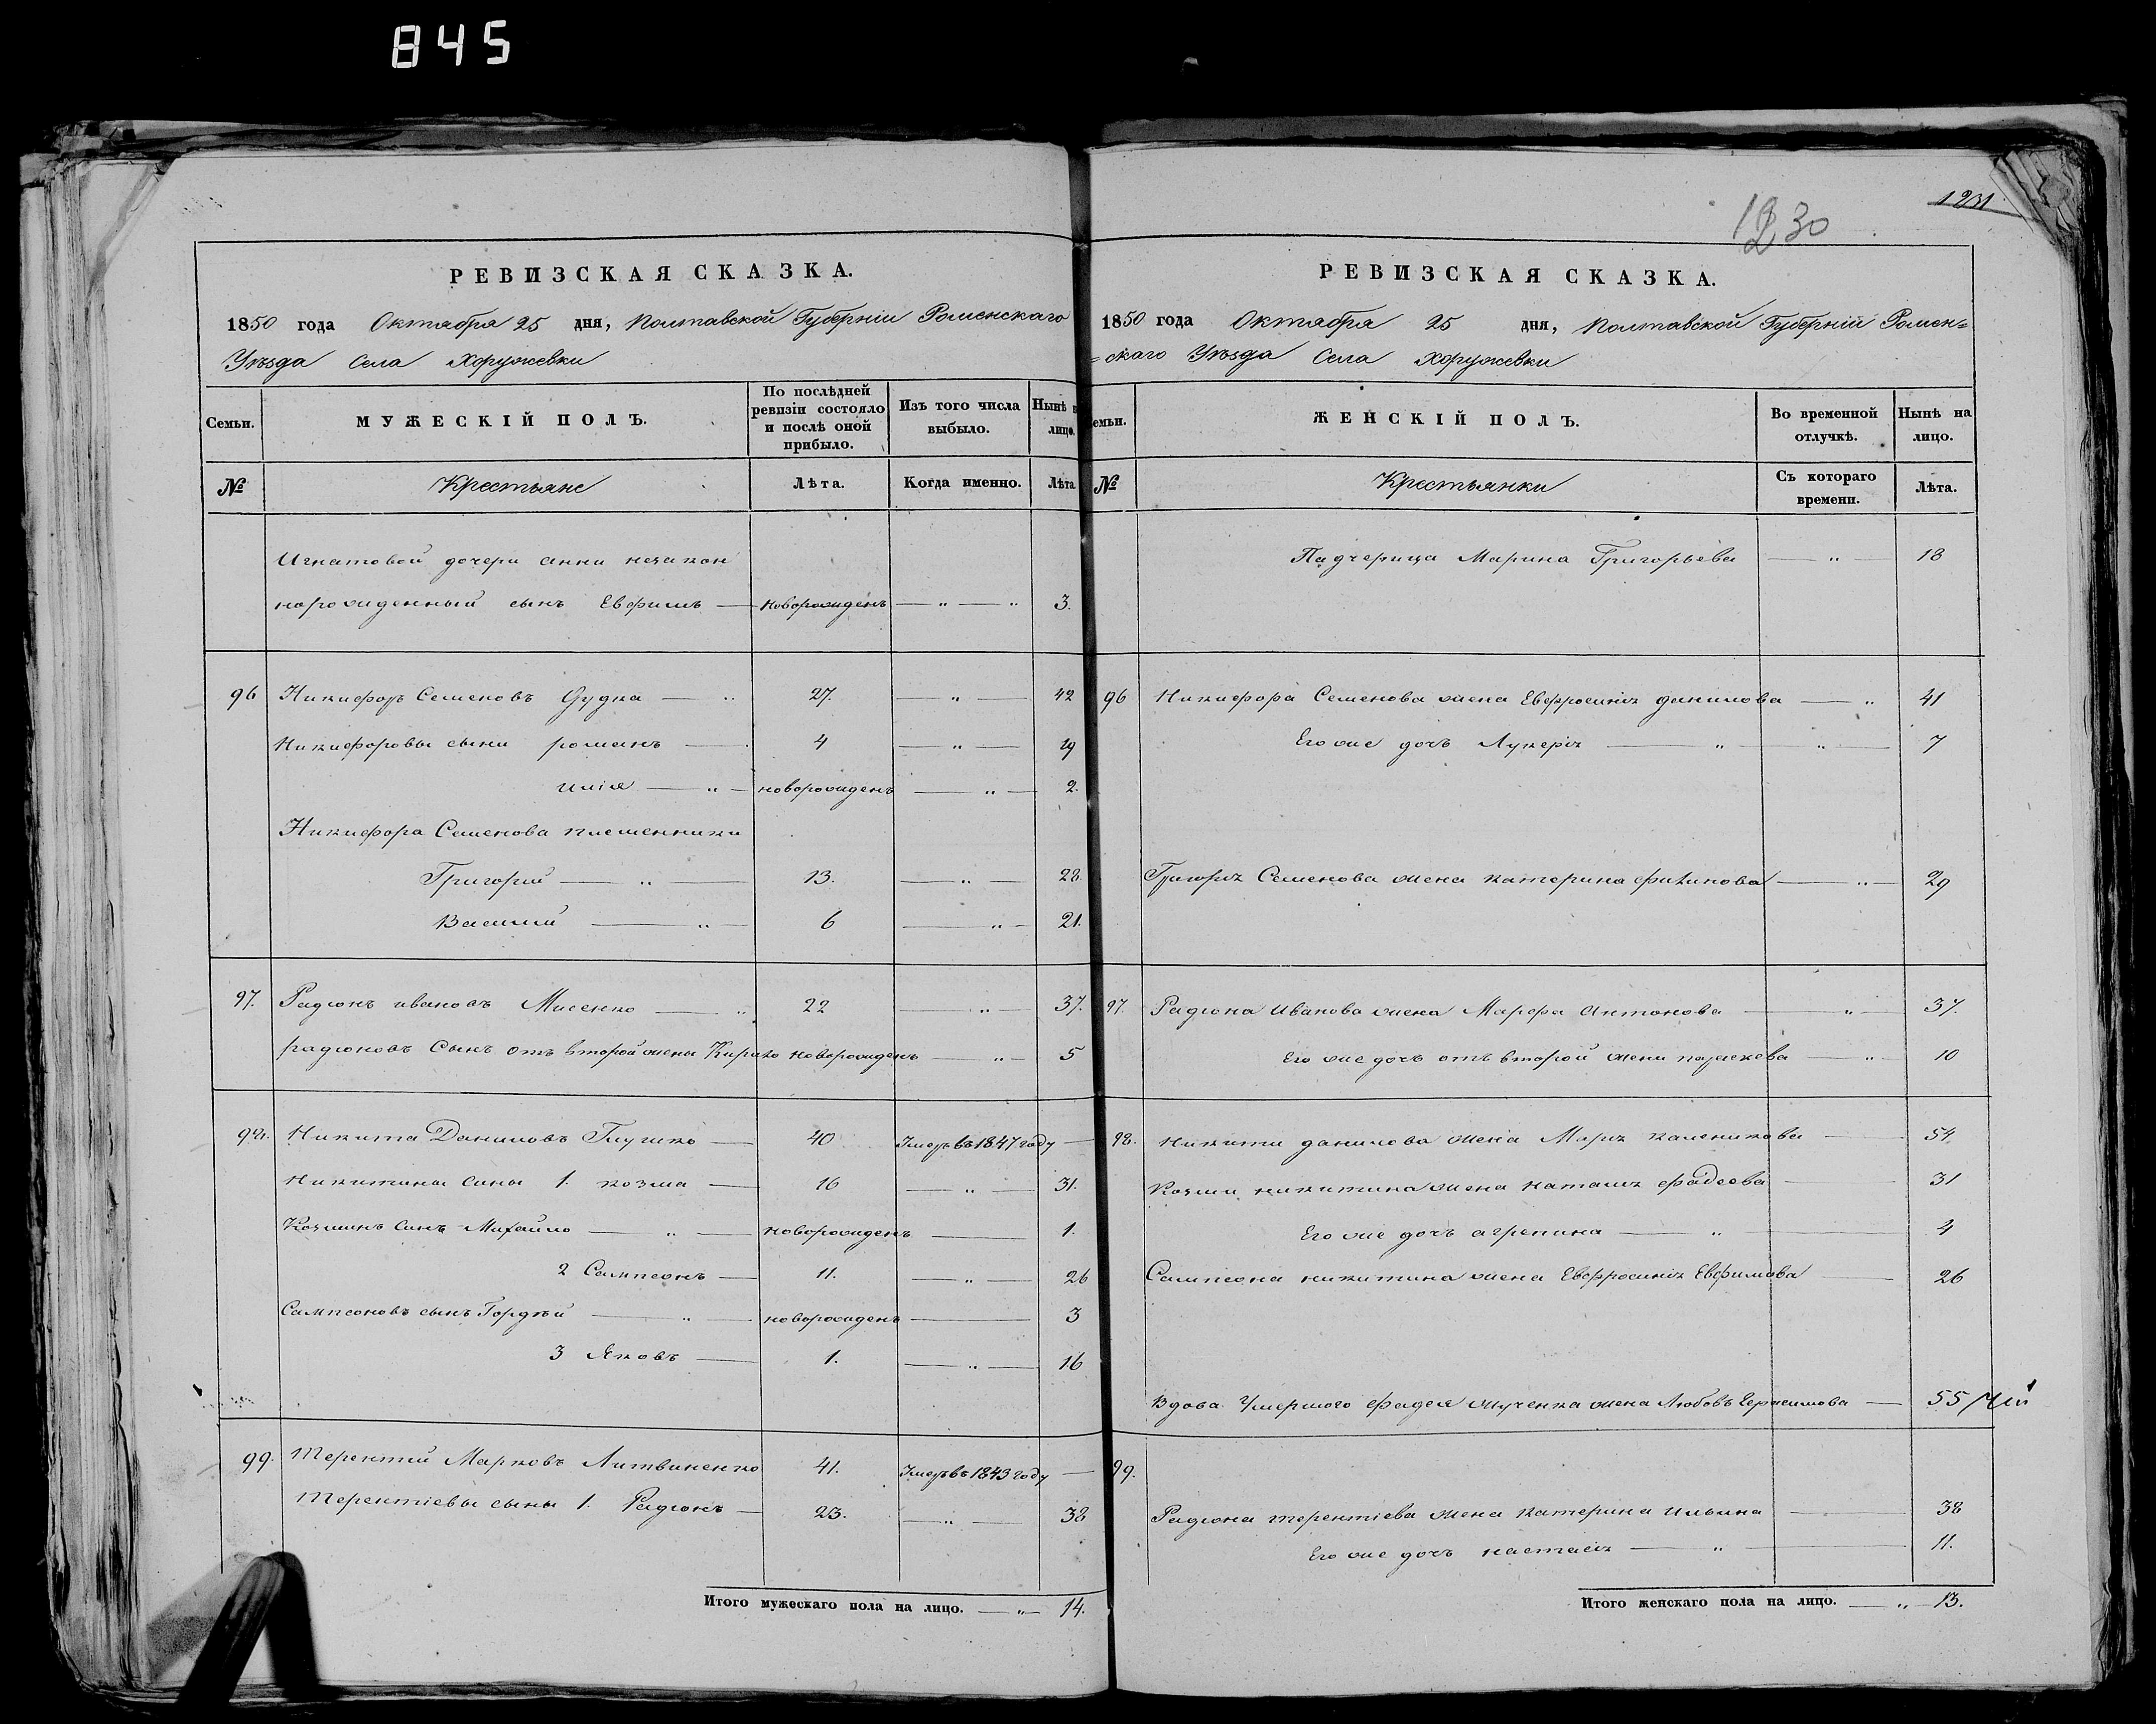 845
РЕВИЗСКАЯ СКАЗКА.
1850 года Октабра 25 дня, Полтавской Губерніи Роменскаго
Уѣзда Села Хоружевки
Семьи. МУЖЕСКІЙ ПОЛЪ. По послѣдней ревизіи состояло и послѣ оной прибыло. Изъ того числа выбыло. Нынѣ лицо.
№ Крестьяне Лѣта. Когда именно. Лѣта
Игнатовой дочери Анни незакон
норожденный сынъ Евфимъ — новорожденъ — „ — „ 3.
96 Никифоръ Семеновъ Дудка — „ 27. — „ — 42
Никифоровы сыни романъ — 4 — „ — 19
илія — „ — новорожденъ — „ — 2.
Никифора Семенова племенники
Григорій — „ — 13. — „ — 28.
Василій — „ — 6 — „ — 21.
97. Радіонъ ивановъ Мисенко — „ 22 — „ — 37.
радіоновъ Сынъ отъ второй жены Кирило новорожденъ — „ — 5
98. Никита Даниловъ Глушко — 40 Умеръ въ 1847 году —
Никитины сины 1. козма — 16 — „ — 31.
Козминъ синъ Михайло — „ — новорожденъ — 1.
2 Сампсонъ — 11. — „ — 26
Сампсоновъ сынъ Гордѣй — „ — новорожденъ — 3
3 Яковъ — 1. — „ — 16
99. Терентій Марковъ Литвиненко 41. Умеръ въ 1843 году —
Терентіевы сыны 1. Радіонъ — 23. — „ — 38
Итого мужескаго пола на лицо. — „ — 14.
1231
1230
РЕВИЗСКАЯ СКАЗКА.
1850 года Октабра 25 дня, Полтавской Губерніи Ромен=
=скаго Уѣзда Села Хоружевки
емьи. ЖЕНСКІЙ ПОЛЪ. Во временной отлучкѣ. Нынѣ на лицо.
№ Крестьянки Съ котораго времени. Лѣта.
Падчерица Марина Григорьева — „ — 18
96 Никифора Семенова жена Евфросинія данилова — „ 41
Его же дочъ Лукерія — „ — „ — 7
Григорія Семенова жена катерина филипова — „ — 29
97. Радіона Иванова жена Марфа Антонова — „ — 37.
Его же дочъ отъ второй жени параскева — „ 10
98. Никити данилова жена Марія каленикова — 54.
Козми никитина жена наталія фадеева — 31
Его же дочъ агрепина — „ — 4
Сампсона никитина жена Евфросинія Евфимова — 26
Вдова Умершого фадея жена Любовъ Герасимова — 55
99.
Радіона терентіева жена катерина ильина — 38
Его же дочъ настасія — „ — 11.
Итого женскаго пола на лицо. — „ — 13.